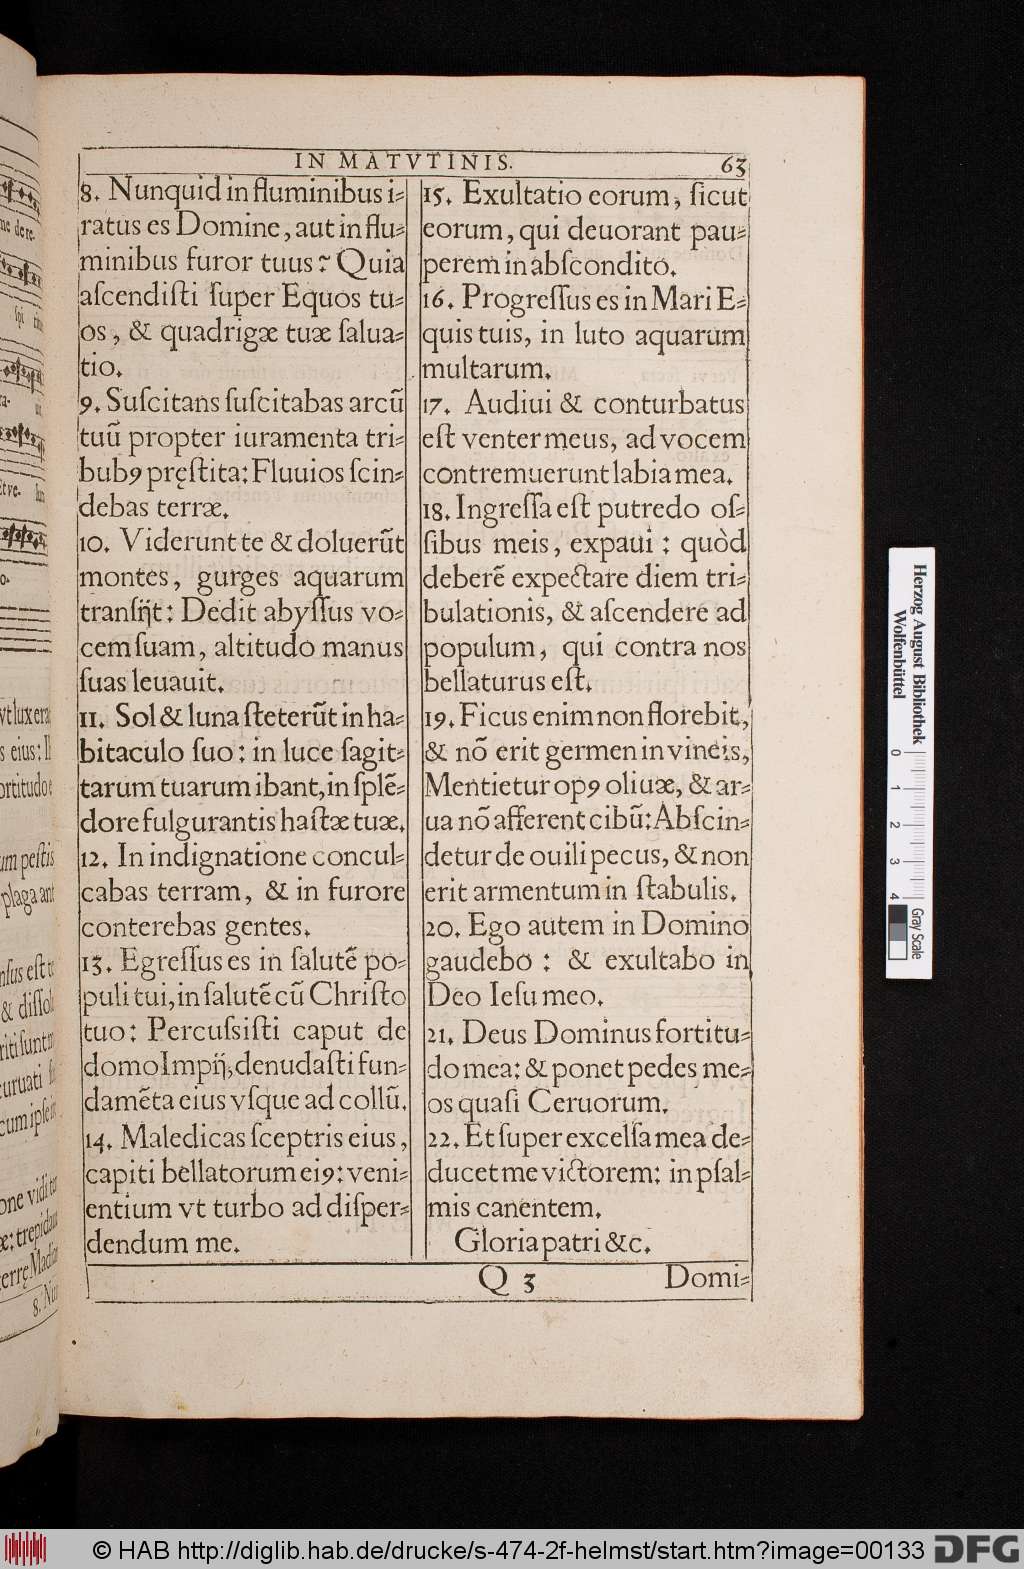 IN MATVTINIS. 63
8. Nunquid in fluminibus i=
ratus es Domine, aut in flu=
minibus furor tuus? Quia
aſcendiſti ſuper Equos tu=
os, & quadrigæ tuæ ſalua=
tio.
9. Suſcitans ſuſcitabas arcũ
tuũ propter iuramenta tri=
bubꝰ pręſtita: Fluuios ſcin=
debas terræ.
10. Viderunt te & doluerũt
montes, gurges aquarum
tranſijt: Dedit abyſſus vo=
cem ſuam, altitudo manus
ſuas leuauit.
11. Sol & luna ſteterũt in ha=
bitaculo ſuo: in luce ſagit=
tarum tuarum ibant, in ſplẽ=
dore fulgurantis haſtæ tuæ.
12. In indignatione concul=
cabas terram, & in furore
conterebas gentes.
13. Egreſſus es in ſalutẽ po=
puli tui, in ſalutẽ cũ Chriſto
tuo: Percuſsiſti caput de
domo Impij, denudaſti fun=
damẽta eius vſque ad collũ.
14. Maledicas ſceptris eius,
capiti bellatorum eiꝰ: veni=
entium vt turbo ad diſper=
dendum me.
15. Exultatio eorum, ſicut
eorum, qui deuorant pau=
perem in abſcondito.
16. Progreſſus es in Mari E=
quis tuis, in luto aquarum
multarum.
17. Audiui & conturbatus
eſt venter meus, ad vocem
contremuerunt labia mea.
18. Ingreſſa eſt putredo oſ=
ſibus meis, expaui: quòd
deberẽ expectare diem tri=
bulationis, & aſcendere ad
populum, qui contra nos
bellaturus eſt.
19. Ficus enim non florebit,
& nõ erit germen in vineis,
Mentietur opꝰ oliuæ, & ar=
ua nõ afferent cibũ: Abſcin=
detur de ouili pecus, & non
erit armentum in ſtabulis.
20. Ego autem in Domino
gaudebo: & exultabo in
Deo Ieſu meo.
21. Deus Dominus fortitu=
do mea: & ponet pedes me=
os quaſi Ceruorum.
22. Et ſuper excelſa mea de=
ducet me victorem: in pſal=
mis canentem.
Gloria patri &c.
Q 3 Domi=
Herzog August Bibliothek
Wolfenbüttel
0 1 2 3 4
Gray Scale
© HAB http://diglib.hab.de/drucke/s-474-2f-helmst/start.htm?image=00133
DFG